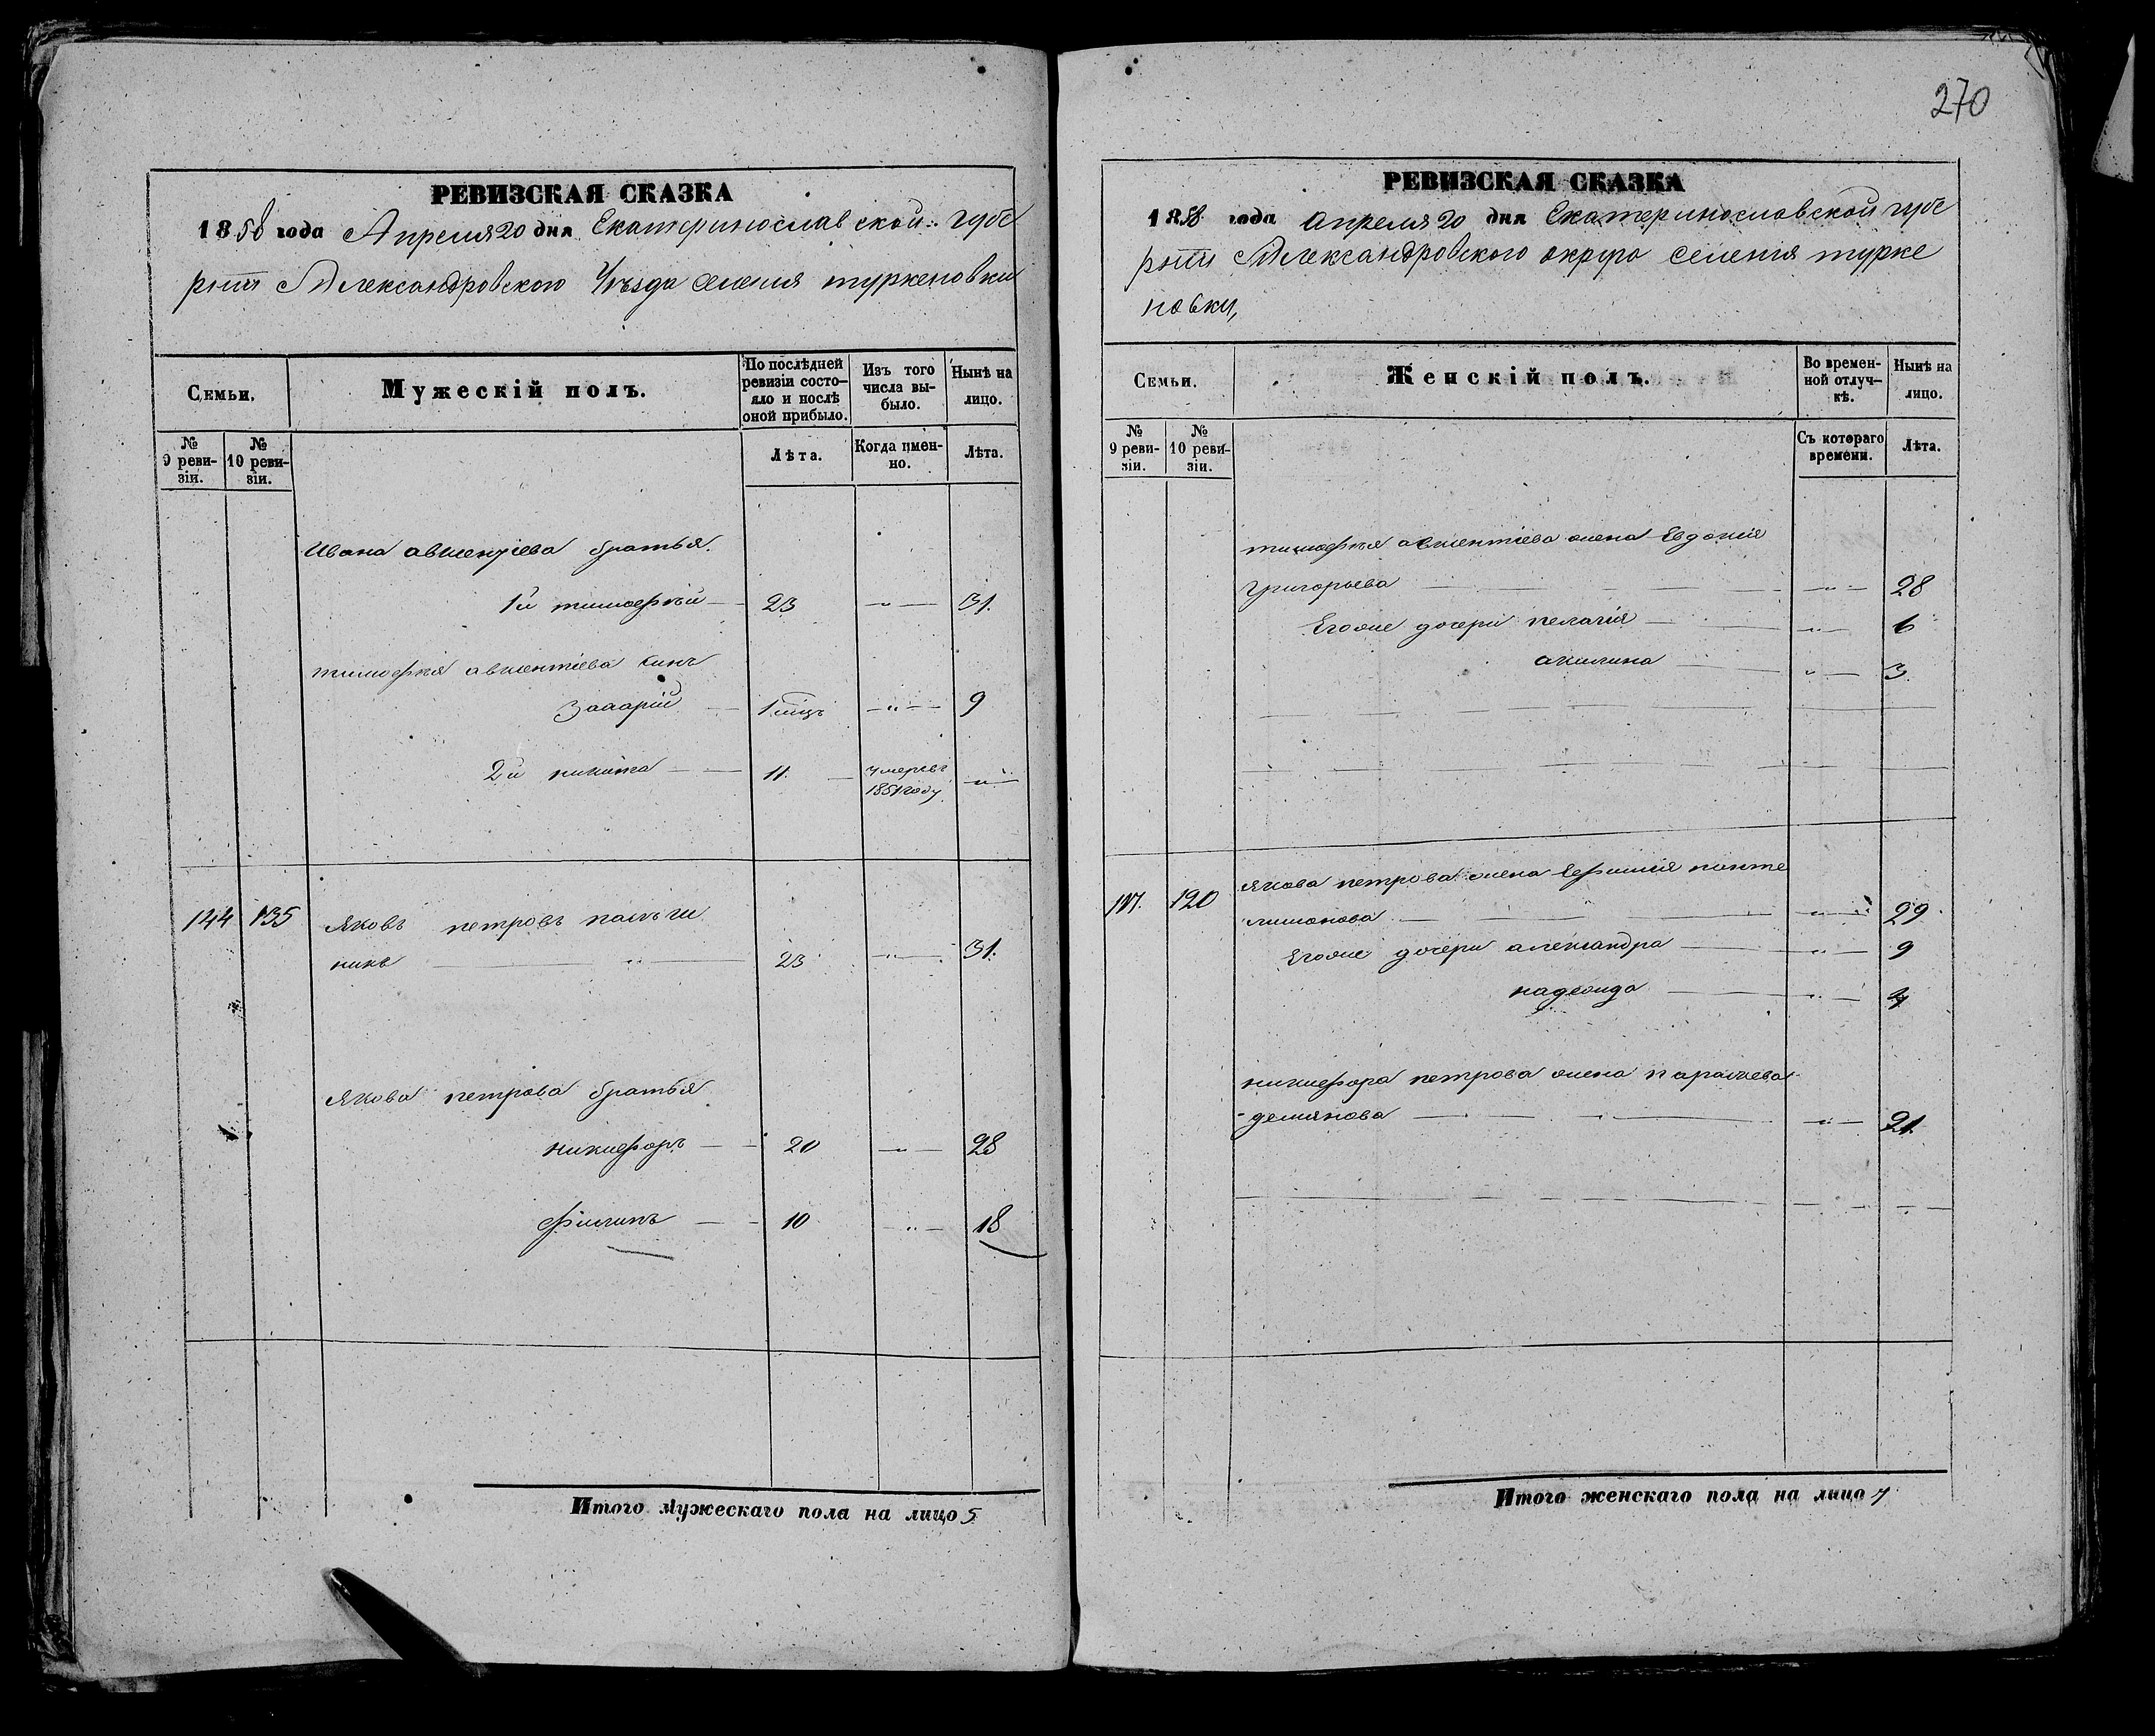 270
РЕВИЗСКАЯ СКАЗКА
1858 года Апреля 20 дня Екатеринославской губе
рніи Александровского Уъзда селенія туркеновки
Семьи.
Мужескій полъ.
По послѣдней ревизіи состояло и послѣ оной прибыло.
Изъ того числа выбыло.
Нынѣ на лицо.
№ 9 ревизіи.
№ 10 ревизіи.
Лѣта.
Когда имен-но.
Лѣта.
Ивана авксентіева братья.
1й тимофей — 23 — „ — 31.
тимофея авксентіева синъ
Захарій — 1 мцъ — „ — 9
2й никита — 11. — умеръвъ 1851 году — „ —
144 135 Яковъ петровъ
никъ — „ — 23 — „ — 31.
Якова петрова братья
никифоръ — 20 — „ — 28
Филипъ — 10 — „ — 18
Итого мужескаго пола на лицо 5
РЕВИЗСКАЯ СКАЗКА
1858 года апреля 20 дня Екатеринославской губе
рніи Александровского округа селенія турке
новки,
Семьи.
Женскій полъ.
Во времен-ной отлуч-кѣ.
Нынѣ на лицо.
№ 9 реви-зіи.
№ 10 реви-зіи.
Съ котораго времени.
Лѣта.
тимофея авксентіева жена Евдокія
григорьева — „ — 28
Егоже дочери пелагія — „ — 6
акилина — „ — 3
120 Якова петрова жена Ефимія панте
лимонова — „ — 29
Егоже дочери александра — „ — 9
надежда — „ — 4
никифора петрова жена параскева
демянова — „ — 21.
Итого женскаго пола на лицо 7